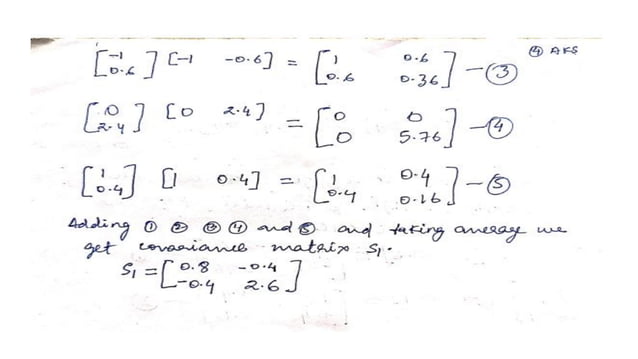 ④ AKS
[-1 0.6] [-1 -0.6] = [1 0.6 0.6 0.36] - ③
[0 2.4] [0 2.4] = [0 0 0 5.76] - ④
[1 0.4] [1 0.4] = [1 0.4 0.4 0.16] - ⑤
Adding ① ② ③ ④ and ⑤ and taking average we
get covariance matrix S₁.
S₁ = [0.8 -0.4 -0.4 2.6]